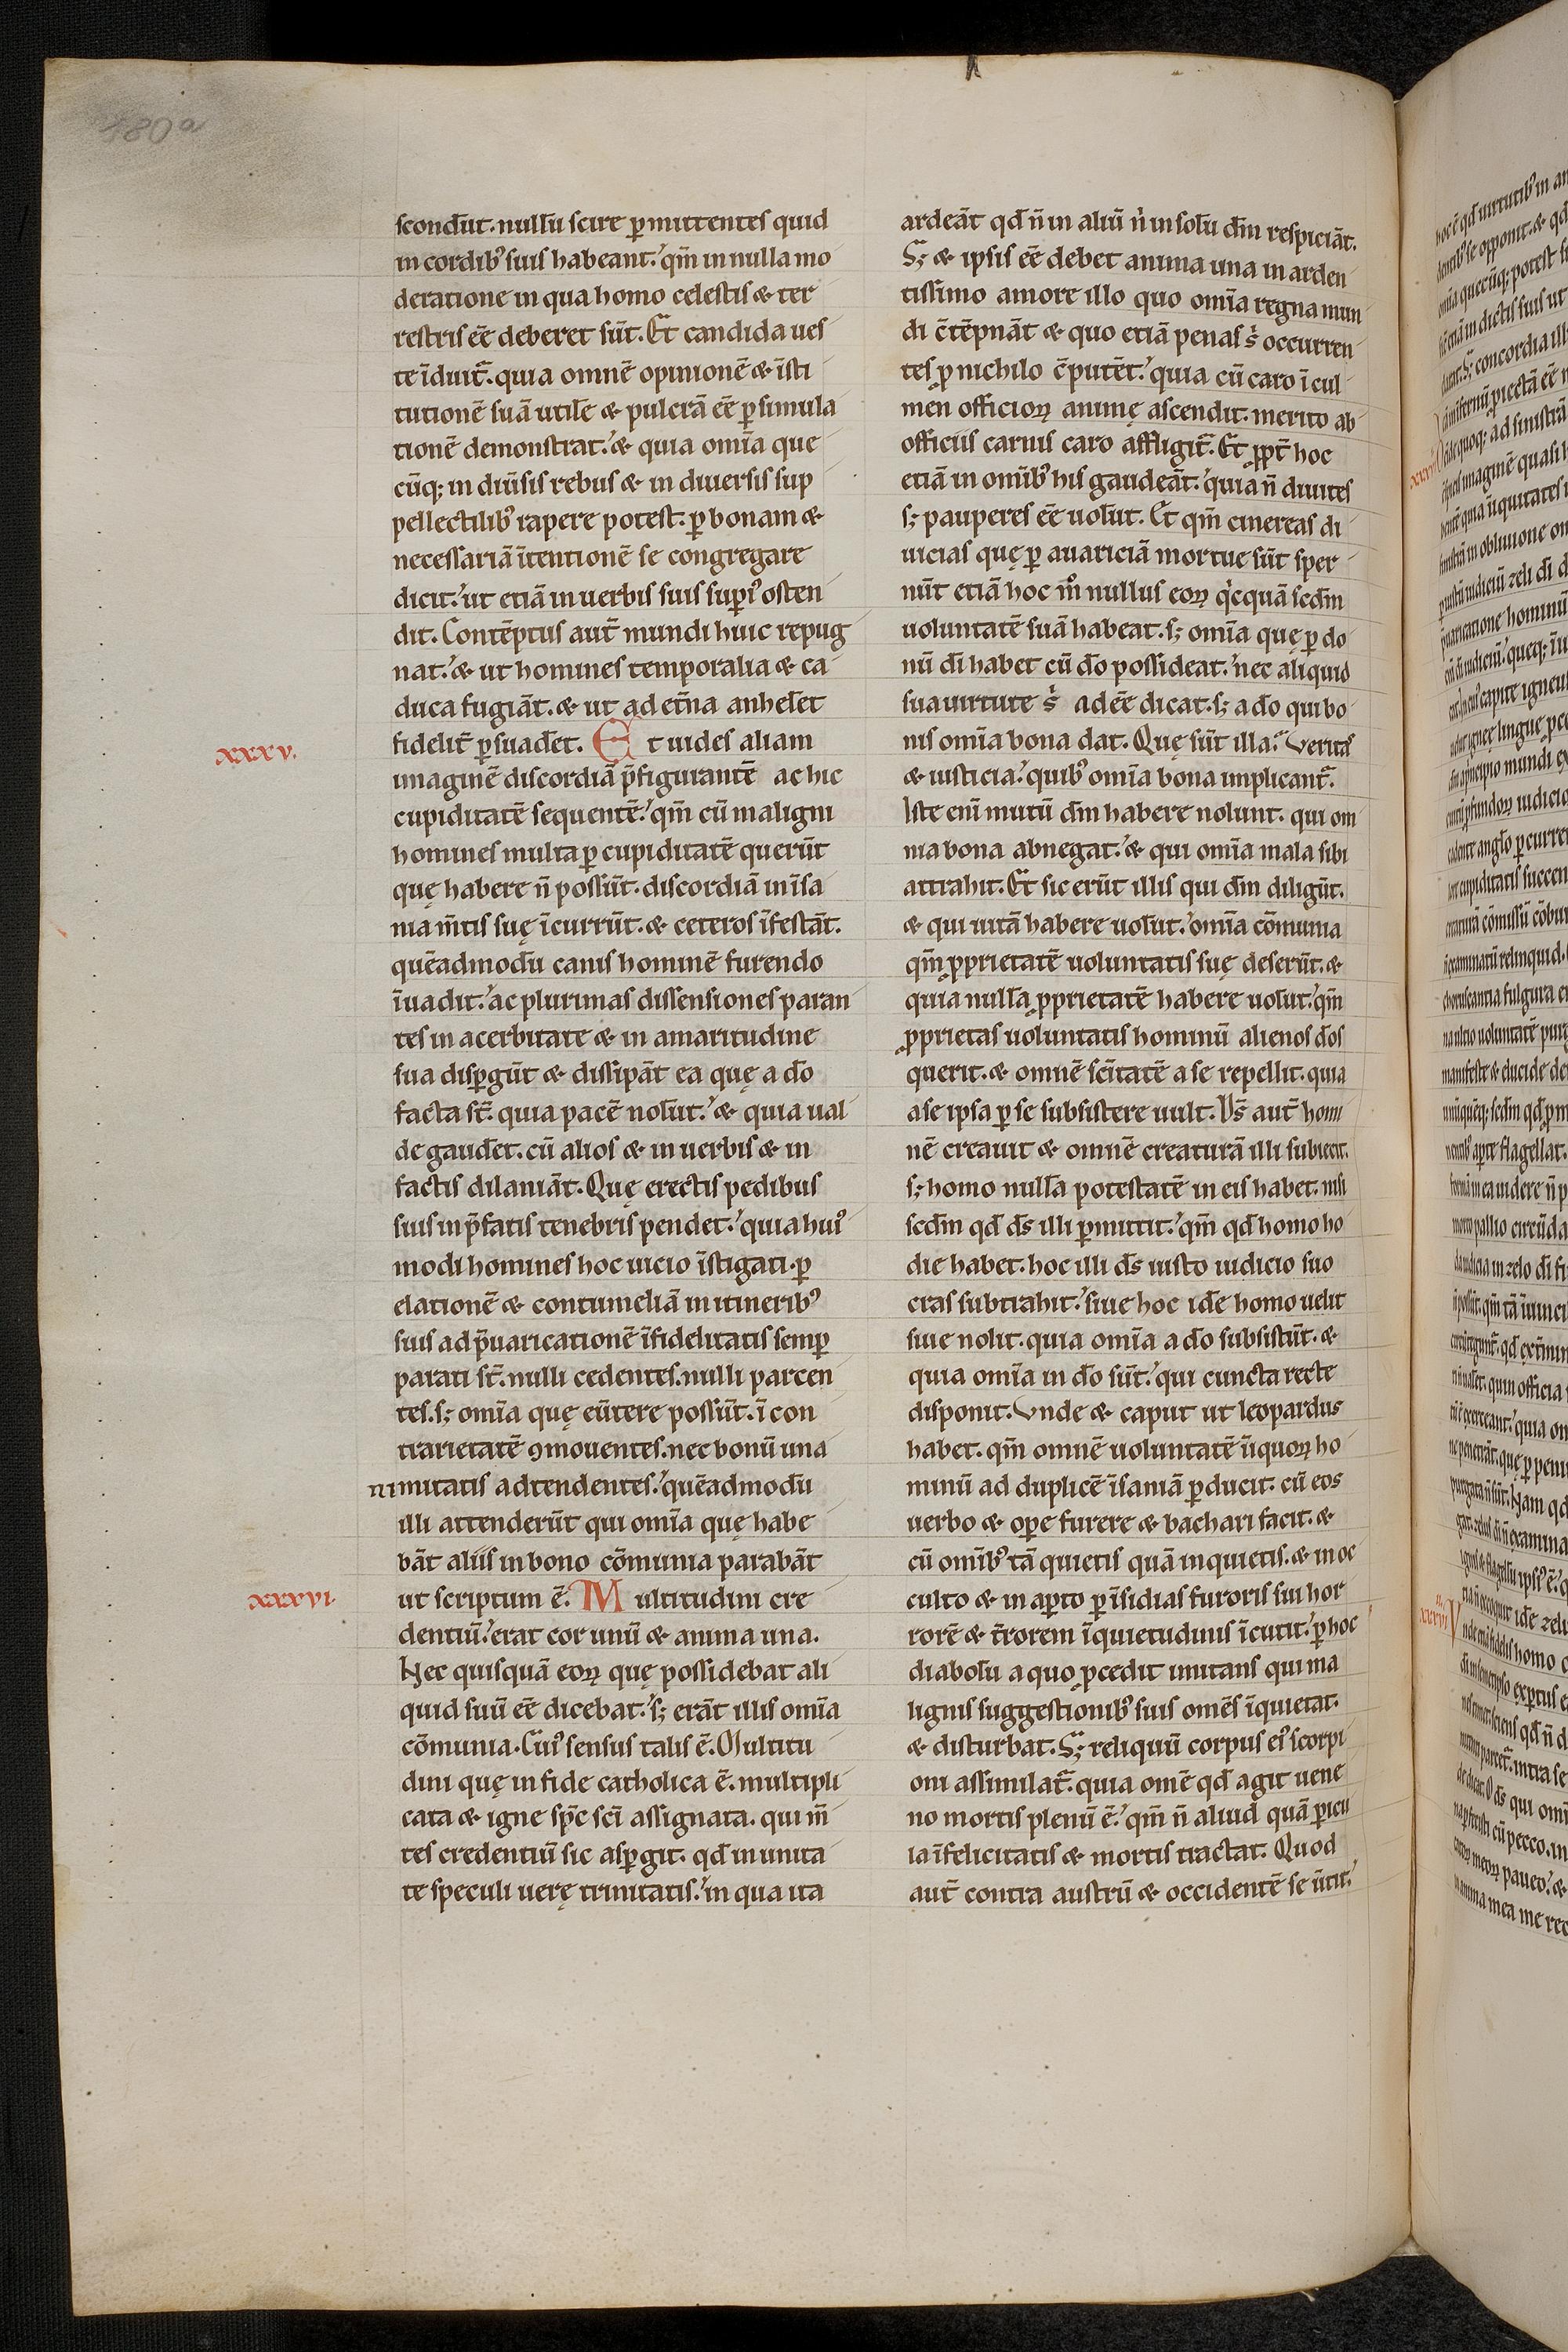 480a
scondūt. nullū scire ꝑmittentes quid
in cordib⁹ suis habeant.' qm̄ in nulla mo
deratione in qua homo celestis & ter
restris eē deberet sūt. Et candida ues
te īduit᷑. quia omnē opinionē & īsti
tutionē suā utilē & pulcrā eē ꝑ simula
tionē demonstrat.' & quia om̄ia que
cūq; in diūsis rebus & in diuersis sup
pellectilib⁹ rapere potest. ꝑ bonam &
necessariā ītentionē se congregare
dicit.' ut etiā in uerbis suis supi⁹ osten
dit. Contēptus aut̄ mundi huic repug
nat.' & ut homines temporalia & ca
duca fugiāt. & ut ad et̄na anhelet
xxxv.
fidelit̄ ꝑsuadet. Et uides aliam
imaginē discordiā p̄figurantē ac hic
cupiditatē sequentē.' qm̄ cū maligni
homines multa ꝑ cupiditatē querūt
quę habere n̄ possūt. discordiā in īsa
nia m̄tis suę īcurrūt. & ceteros īfestāt.
quēadmodū canis hominē furendo
īuadit.' ac plurimas dissensiones paran
tes in acerbitate & in amaritudine
sua dispgūt & dissipāt ea quę a dō
facta st̄. quia pacē nolūt.' & quia ual
de gaudet. cū alios & in uerbis & in
factis dilaniāt. Quę erectis pedibus
suis in p̄fatis tenebris pendet.' quia hui⁹
modi homines hoc uicio īstigati. ꝑ
elationē & contumeliā in itinerib⁹
suis ad p̄uaricationē īfidelitatis semꝑ
parati st̄. nulli cedentes. nulli parcen
tes. s; om̄ia quę eūtere possūt. ī con
trarietatē ꝯmouentes. nec bonū una
nimitatis adtendentes.' quēadmodū
illi attenderūt qui om̄ia quę habe
bāt aliis in bono cōmunia parabāt
xxxvi.
ut scriptum ē. Multitudini cre
dentiū.' erat cor unū & anima una.
Nec quisquā eoꝝ quę possidebat ali
quid suū eē dicebat.' s; erāt illis om̄ia
cōmunia. Cui⁹ sensus talis ē. Multitu
dini quę in fide catholica ē. multipli
cata & igne spc̄ scī assignata. qui m̄
tes credentiū sic asꝑgit. qd̄ in unita
te speculi uerę trinitatis.' in qua ita
ardeāt qd̄ n̄ in aliū n̄ in solū dm̄ respiciāt.
S; & ipsis eē debet anima una in arden
tissimo amore illo quo om̄ia regna mun
di c̄tēpnāt & quo etiā penas s' occurren
tes ꝓ nichilo c̄putēt.' quia cū caro ī cul
men officioꝝ animę ascendit. merito ab
officiis carnis caro affligit᷑. Et ꝓpt̄ hoc
etiā in omīb⁹ his gaudeāt.' quia n̄ diuites
s; pauperes eē uolūt. Et qm̄ cinereas di
uicias quę ꝑ auariciā mortue sūt sper
nūt etiā hoc m̊ nullus eoꝝ q̇cquā scdm̄
uoluntatē suā habeat. s; om̄ia quę ꝑ do
nū dī habet cū dō possideat.' nec aliquid
sua uirtute s' adeē dicat. s; a dō qui bo
nis om̄ia bona dat. Quę sūt illa? Veritas
& iusticia.' quib⁹ om̄ia bona implicant᷑.
Iste enī mutū dm̄ habere nolunt. qui om
nia bona abnegat.' & qui om̄ia mala sibi
attrahit. Et sic erūt illis qui dm̄ diligūt.
& qui uitā habere uolūt.' om̄ia cōmunia
qm̄ ꝓprietatē uoluntatis suę deserūt. &
quia nullā ꝓprietatē habere uolūt.' qm̄
ꝓprietas uoluntatis hominū alienos dōs
querit. & omnē scītatē a se repellit. quia
a se ipsa ꝑ se subsistere uult. Ds̄ aut̄ homi
nē creauit & omnē creaturā illi subiecit.
s; homo nullā potestatē in eis habet. nisi
scdm̄ qd̄ ds̄ illi ꝑmittit.' qm̄ qd̄ homo ho
die habet. hoc illi ds̄ iusto iudicio suo
cras subtrahit.' siue hoc idē homo uelit
siue nolit. quia om̄ia a dō subsistūt. &
quia om̄ia in dō sūt.' qui cuncta recte
disponit. Vnde & caput ut leopardus
habet. qm̄ omnē uoluntatē īiquoꝝ ho
minū ad duplicē īsaniā ꝑducit. cū eos
uerbo & oꝑe furere & bachari facit. &
cū omīb⁹ tā quietis quā inquietis. & in oc
culto & in aꝑto ꝑ īsidias furoris sui hor
rorē & t̄rorem īquietudinis īcutit.' ꝑ hoc
diabolū a quo ꝓcedit imitans qui ma
lignis suggestionib⁹ suis omēs īquietat.
& disturbat. S; reliquū corpus ei⁹ scorpi
oni assimilat᷑. quia omē qd̄ agit uene
no mortis plenū ē.' qm̄ n̄ aliud quā ꝑicu
la īfelicitatis & mortis tractat. Quod
aut̄ contra austrū & occidentē se ūtit.'